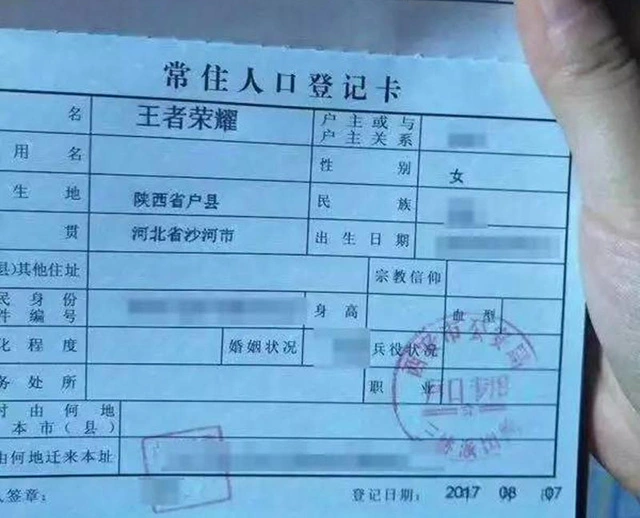 常住人口登记卡
名 王者荣耀 户主或与户主关系
用名 性别 女
生地 陕西省户县 民族
贯 河北省沙河市 出生日期
县)其他住址 宗教信仰
民身份件编号 身高 血型
化程度 婚姻状况 兵役状况
务处所 职业
时由何地
本市(县)
由何地迁来本址
人签章: 登记日期: 2017 08 07